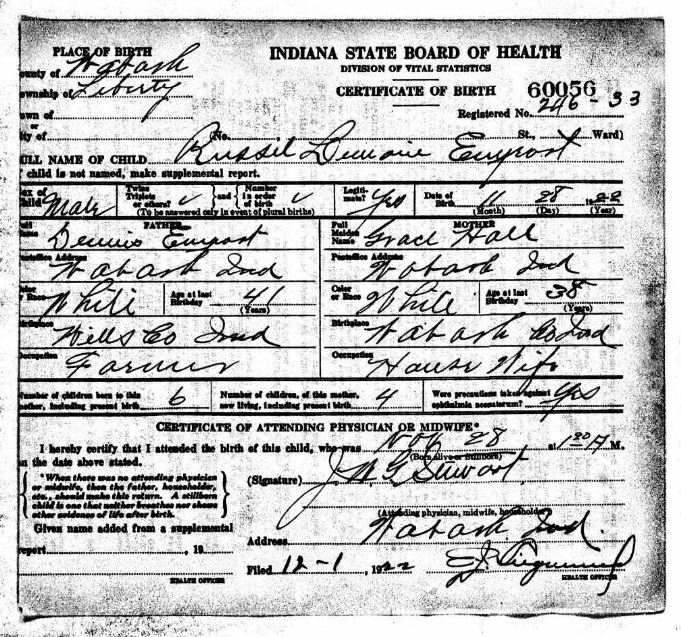 PLACE OF BIRTH
INDIANA STATE BOARD OF HEALTH
DIVISION OF VITAL STATISTICS
ounty of Wabash
CERTIFICATE OF BIRTH 60056
ownship of Liberty
Registered No. 246-33
own of
or
ity of (No. St., Ward)
ULL NAME OF CHILD Russel
child is not named, make supplemental report.
ex of Child Male Twins Triplets or others? and Number in order of birth Legiti- mate? Yes Date of Birth 11 28 1922
(To be answered only in event of plural births) (Month) (Day) (Year)
FATHER MOTHER
ull Name Dennis Full Maiden Name Grace Hall
ostoffice Address Wabash Ind Postoffice Address Wabash Ind
olor or Race White Age at last Birthday 41 (Years) Color or Race White Age at last Birthday 38 (Years)
irthplace Wells Co Ind Birthplace Wabash Co Ind
ccupation Farmer Occupation House Wife
umber of children born to this mother, including present birth 6 Number of children, of this mother, now living, including present birth 4 Were precautions taken against ophthalmia neonatorum? Yes
CERTIFICATE OF ATTENDING PHYSICIAN OR MIDWIFE*
I hereby certify that I attended the birth of this child, who was Nov 28 at 1 30 A M.
(Born alive or Stillborn)
n the date above stated.
*When there was no attending physician
or midwife, then the father, householder,
etc., should make this return. A stillborn
child is one that neither breathes nor shows
other evidence of life after birth.
(Signature) J W G Stewart
(Attending physician, midwife, householder)
Given name added from a supplemental
Address Wabash Ind.
report , 19
Filed 12-1, 1922
HEALTH OFFICER HEALTH OFFICER